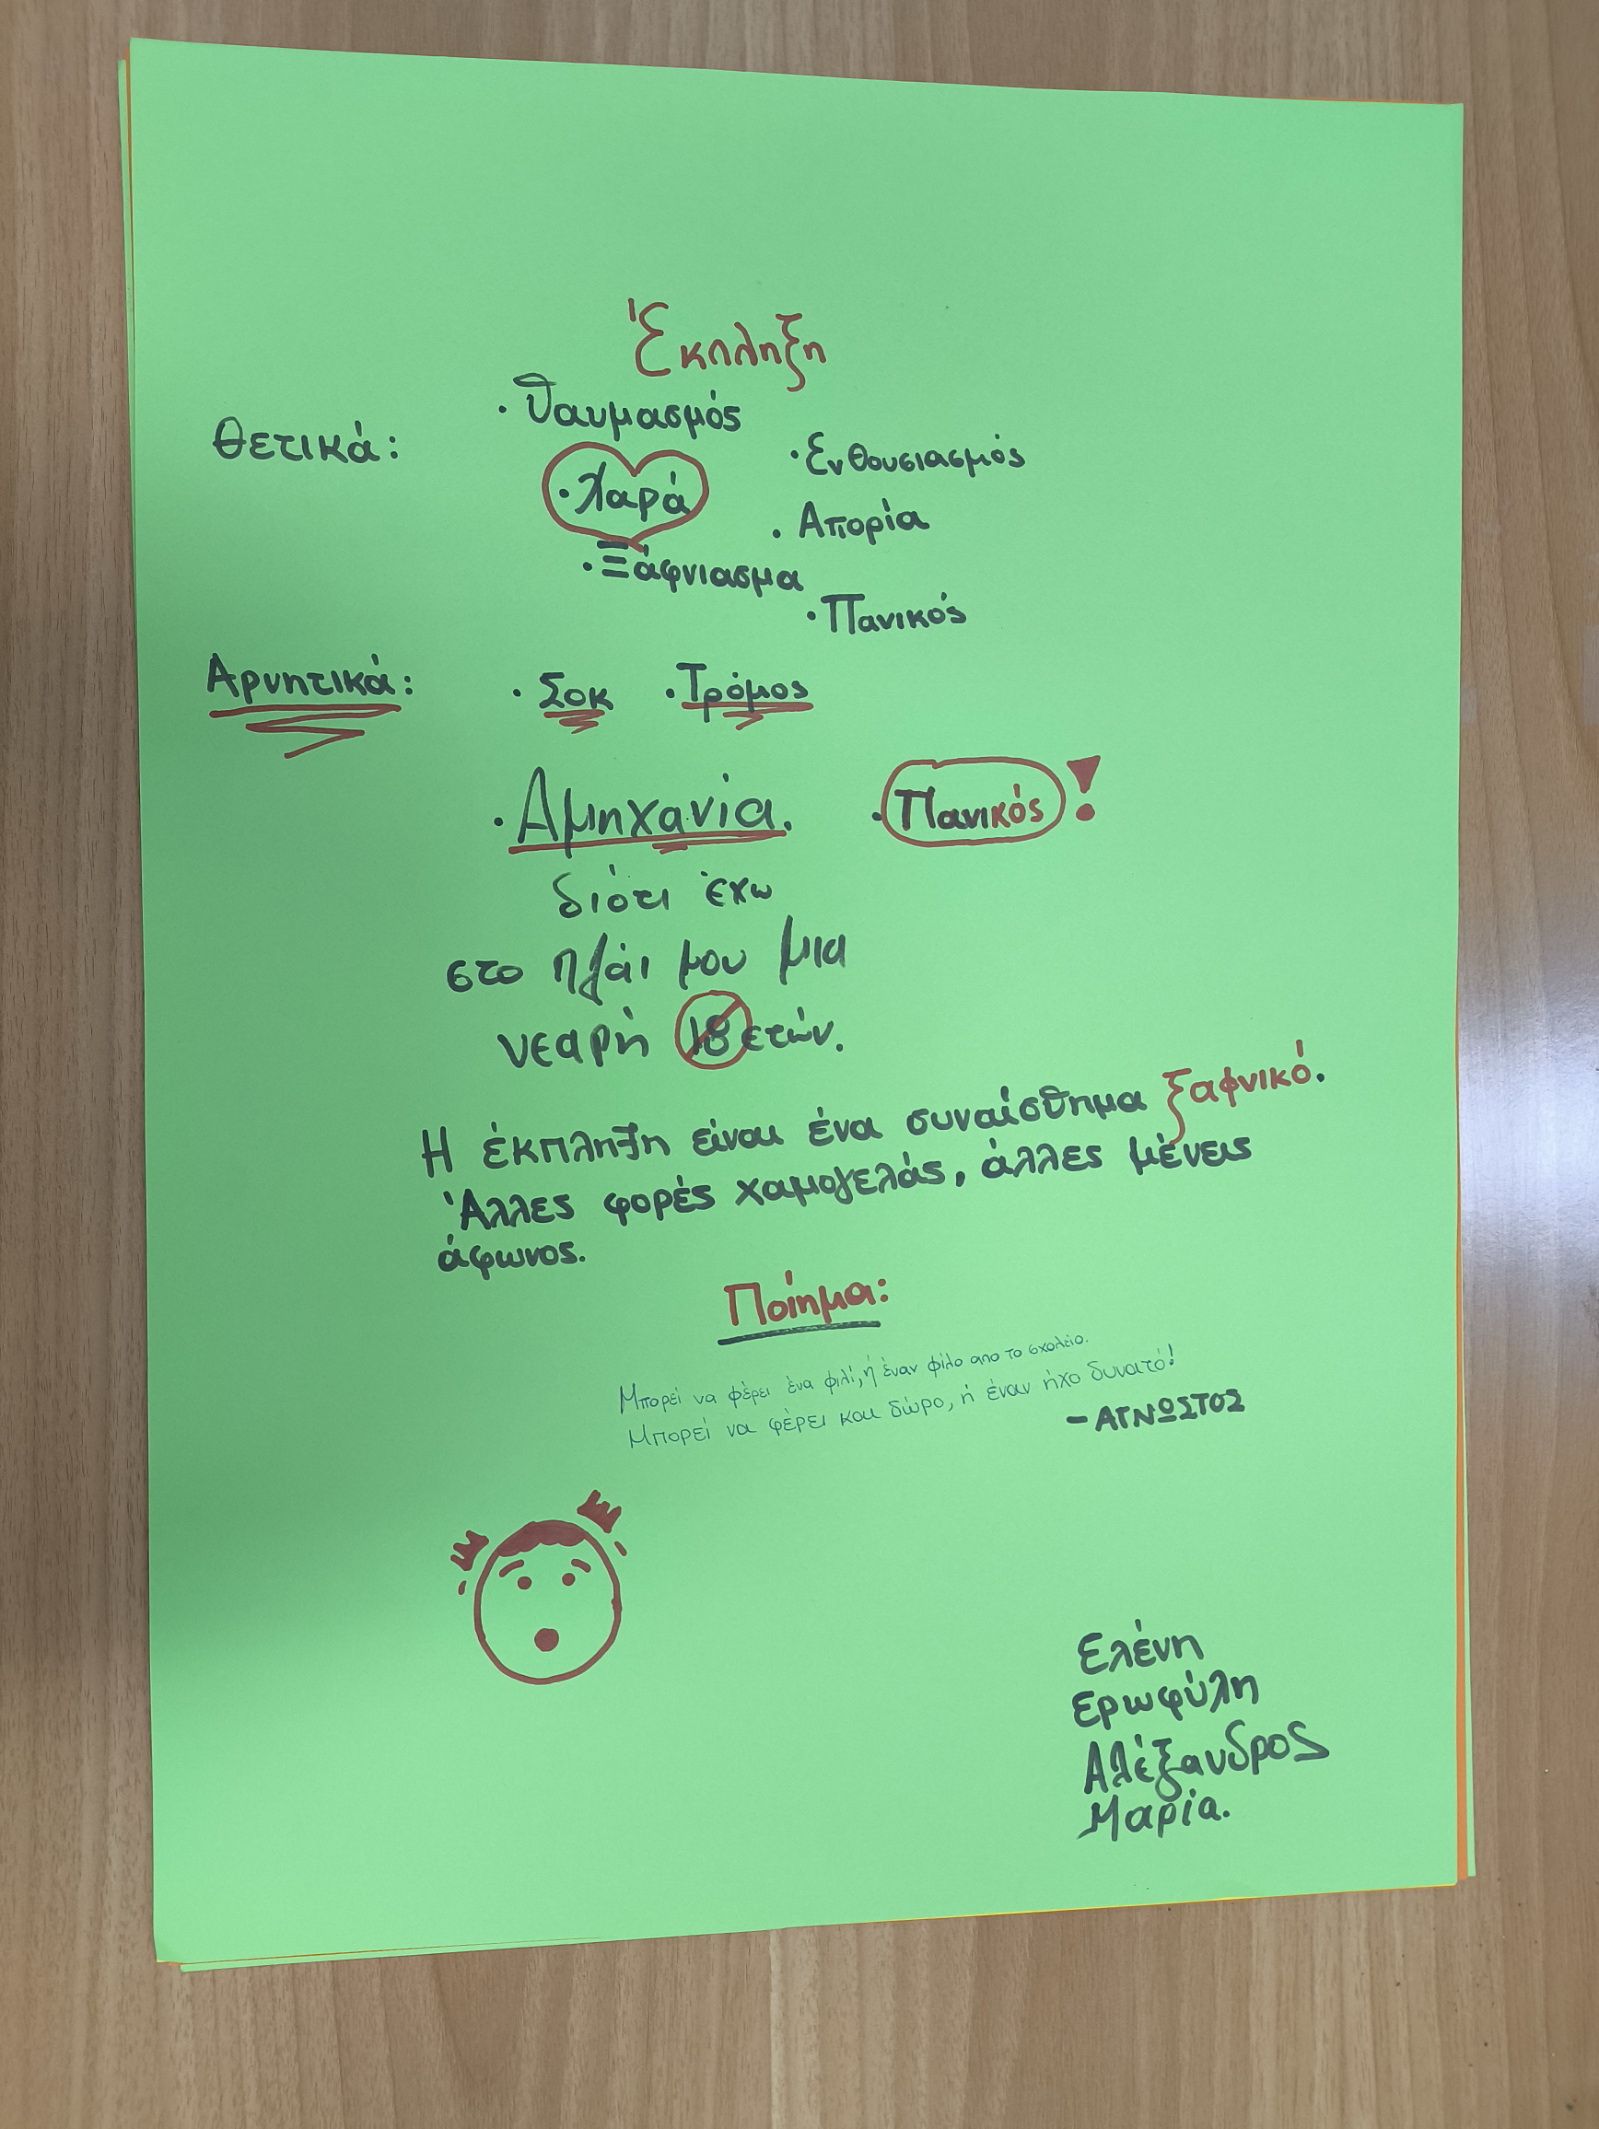 Έκπληξη
Θετικά:
· Θαυμασμός
· Ενθουσιασμός
· Χαρά
· Απορία
· Ξάφνιασμα
· Πανικός
Αρνητικά:
· Σοκ · Τρόμος
· Αμηχανία. · Πανικός!
διότι έχω
στο πλάι μου μια
νεαρή 18 ετών.
Η έκπληξη είναι ένα συναίσθημα ξαφνικό.
Άλλες φορές χαμογελάς, άλλες μένεις
άφωνος.
Ποίημα:
Μπορεί να φέρει ένα φιλί, ή έναν φίλο απο το σχολείο.
Μπορεί να φέρει και δώρο, ή έναν ήχο δυνατό!
- ΑΓΝΩΣΤΟΣ
Ελένη
Ερωφύλη
Αλέξανδρος
Μαρία.